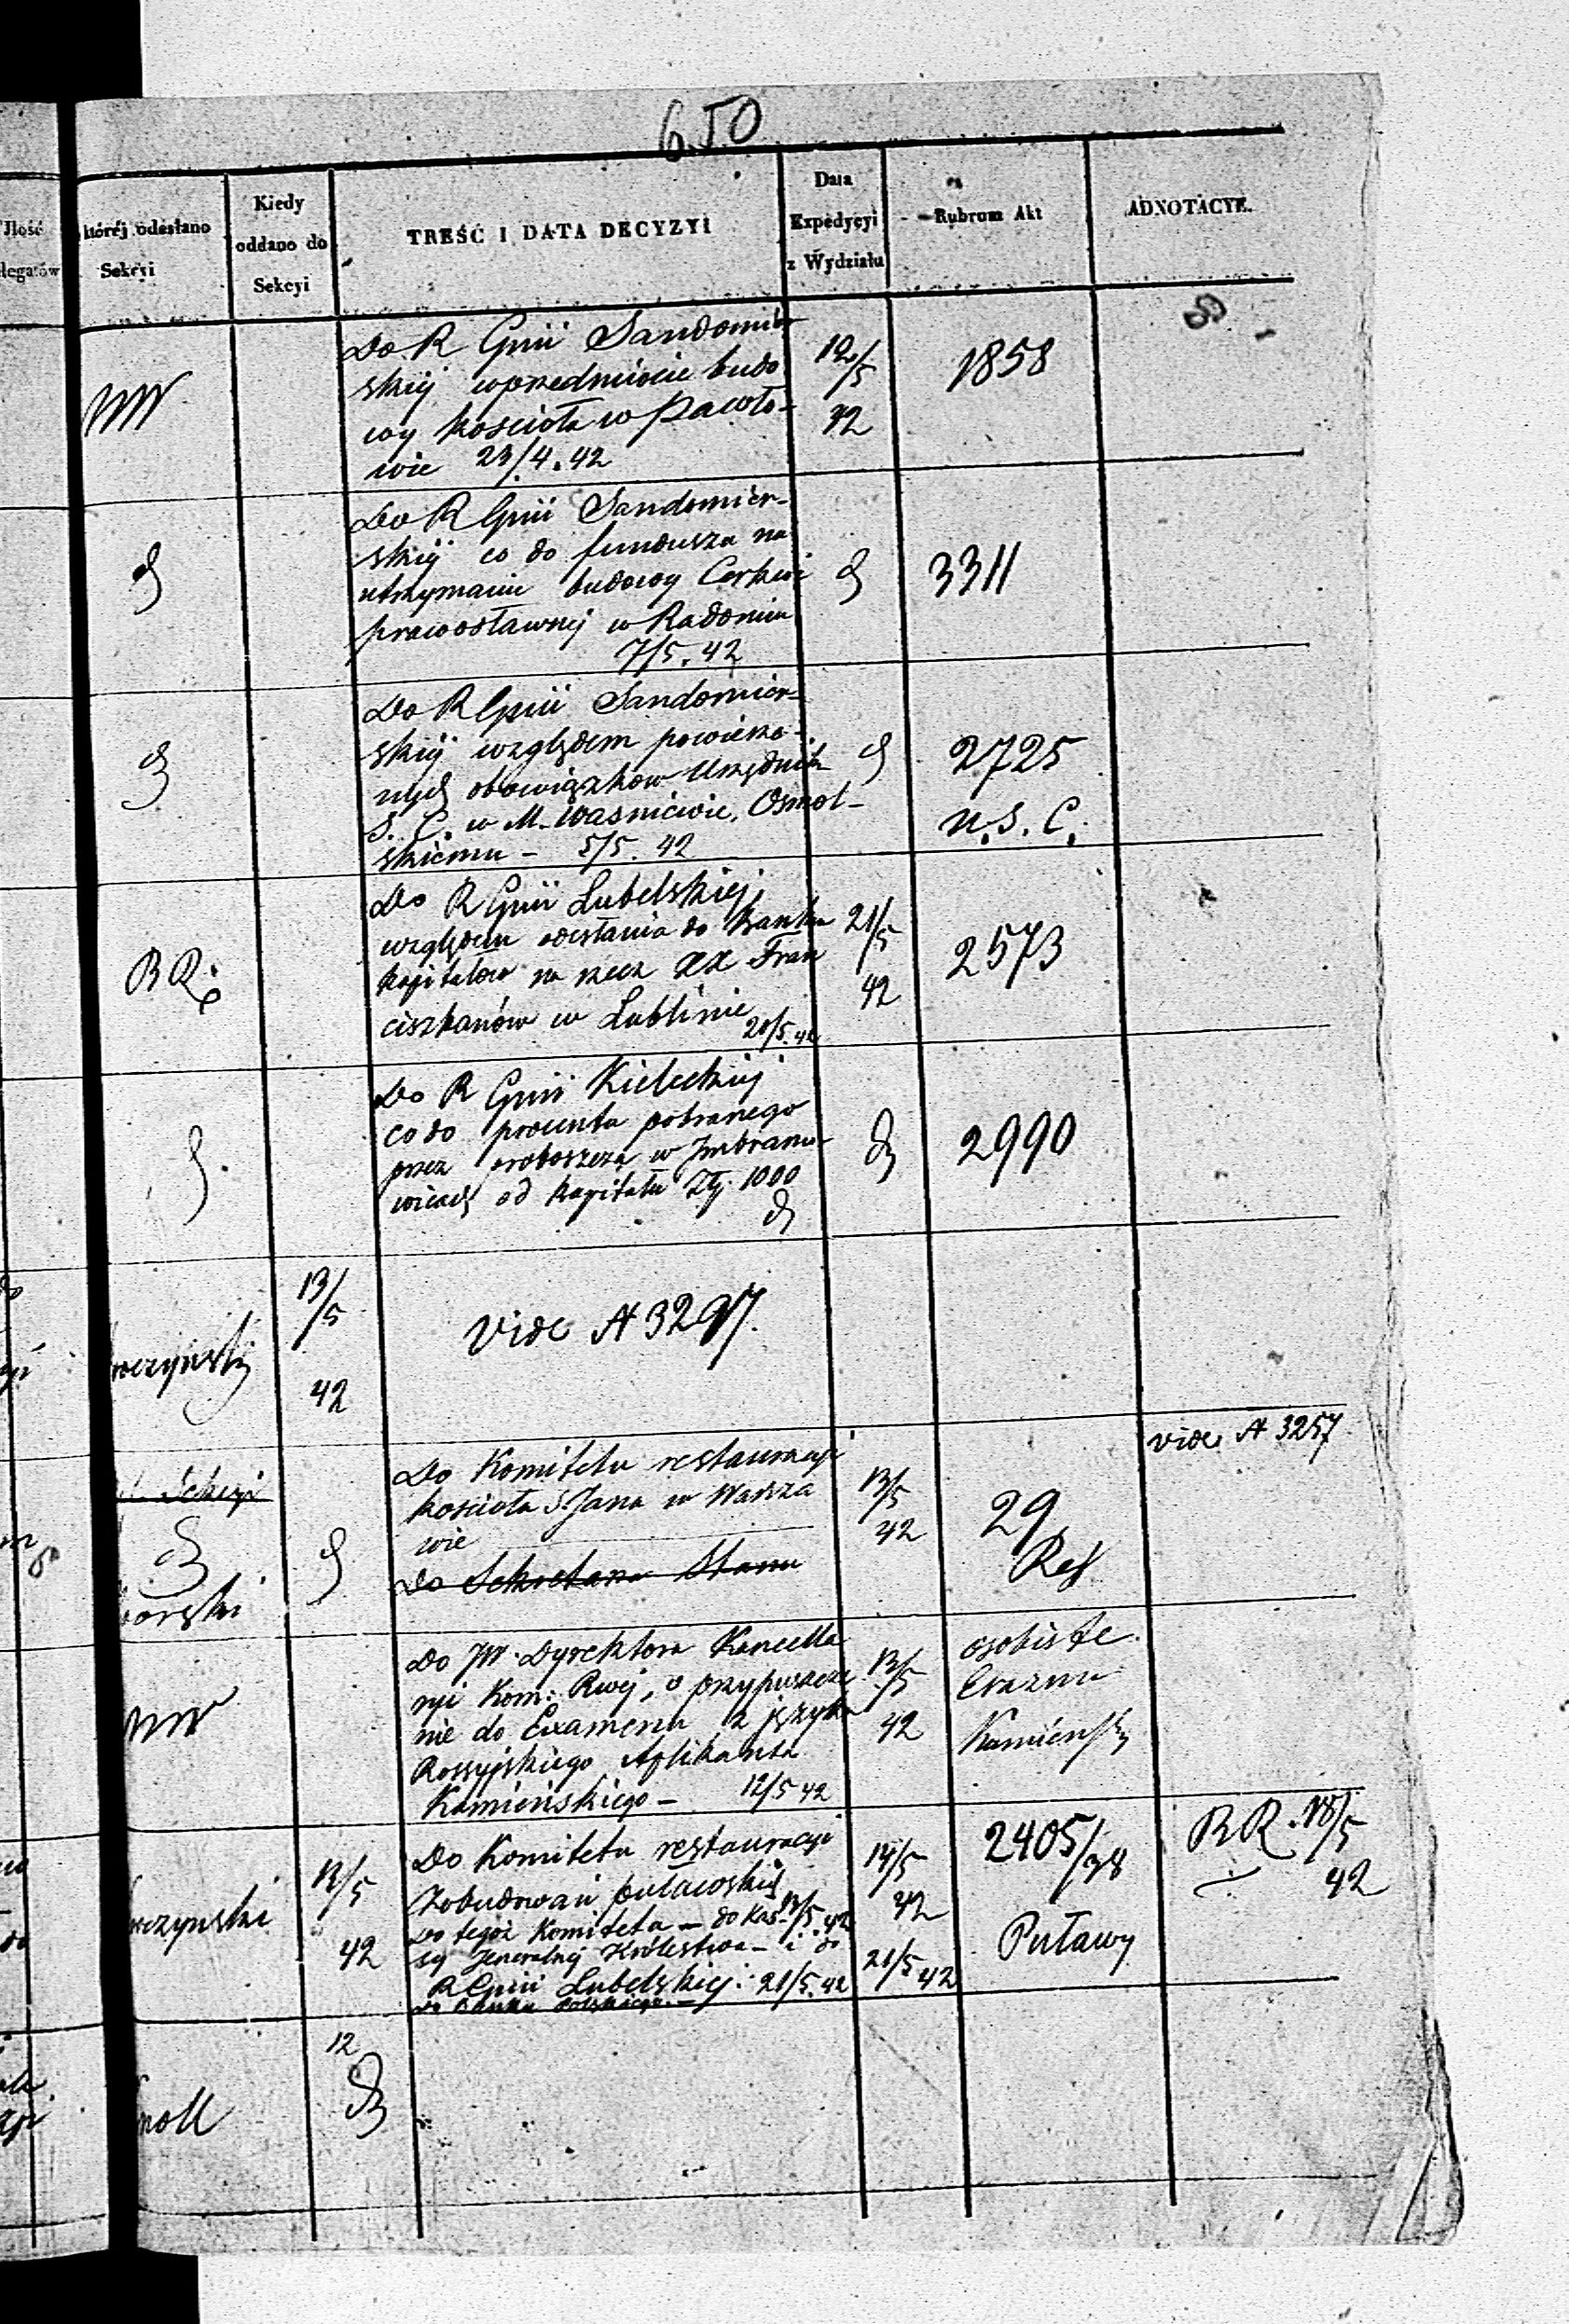 650
Ilość
legatów
któréj odesłano
Sekcyi
Kiedy
oddano do
Sekcyi
TREŚĆ I DATA DECYZYI
Data
Expedycyi
z Wydziału
Rubrum Akt
ADNOTACYE.
Do R Gnii Sandomir
skiéj w przedmiocie budo
wy kościoła w Pawło-
wie 23/4.42
12/5
42
1858
Do R Gnii Sandomier-
skiéj co do funduszu na
utrzymanie budowy Cerkwi
prawosławnéj w Radomiu
7/5.42
3311
Do R Gnii Sandomier-
skiéj względem powierzo-
nych obowiązków Urzędnik
S. C. w M. Waśniewie, Osmol-
skiemu - 5/5.42
2725
U.S.C.
BR.
Do R Gnii Lubelskiej,
względem odesłania do Banku
kapitałów na rzecz XX Fran
ciszkanów w Lublinie
20/5.42
21/5
42
2573
Do R Gnii Kieleckiéj
co do procentu pobranego
przez proboszcza w Imbramo-
wicach od kapitału Złp. 1000
2990
13/5
42
vide N 3297.
Sekcyi
orski
Do Komitetu restauracyi
kościoła S. Jana w Warsza
wie
Do Sekretarza Stanu
13/5
42
29
Rel
vide N 3257
Do JW. Dyrektora Kancella
ryi Kom: Rwéj, o przypuszcze
nie do Examenu z języka
Rossyjskiego Aplikanta
Kamieńskiego - 12/5 42
13/5
42
osobiste
Erazma
Kamieński
czynski
12/5
42
Do Komitetu restauracyi
Zabudowań puławskich
13/5.42
Do tegoż Komitetu - do Kas-
sy Jeneralnéj Królestwa - i do
R Gnii Lubelskiej. 21/5.42
do Banku Polskiego. -
14/5
42
21/5 42
2405/38
Puławy
BR. 18/5
42
noll
12